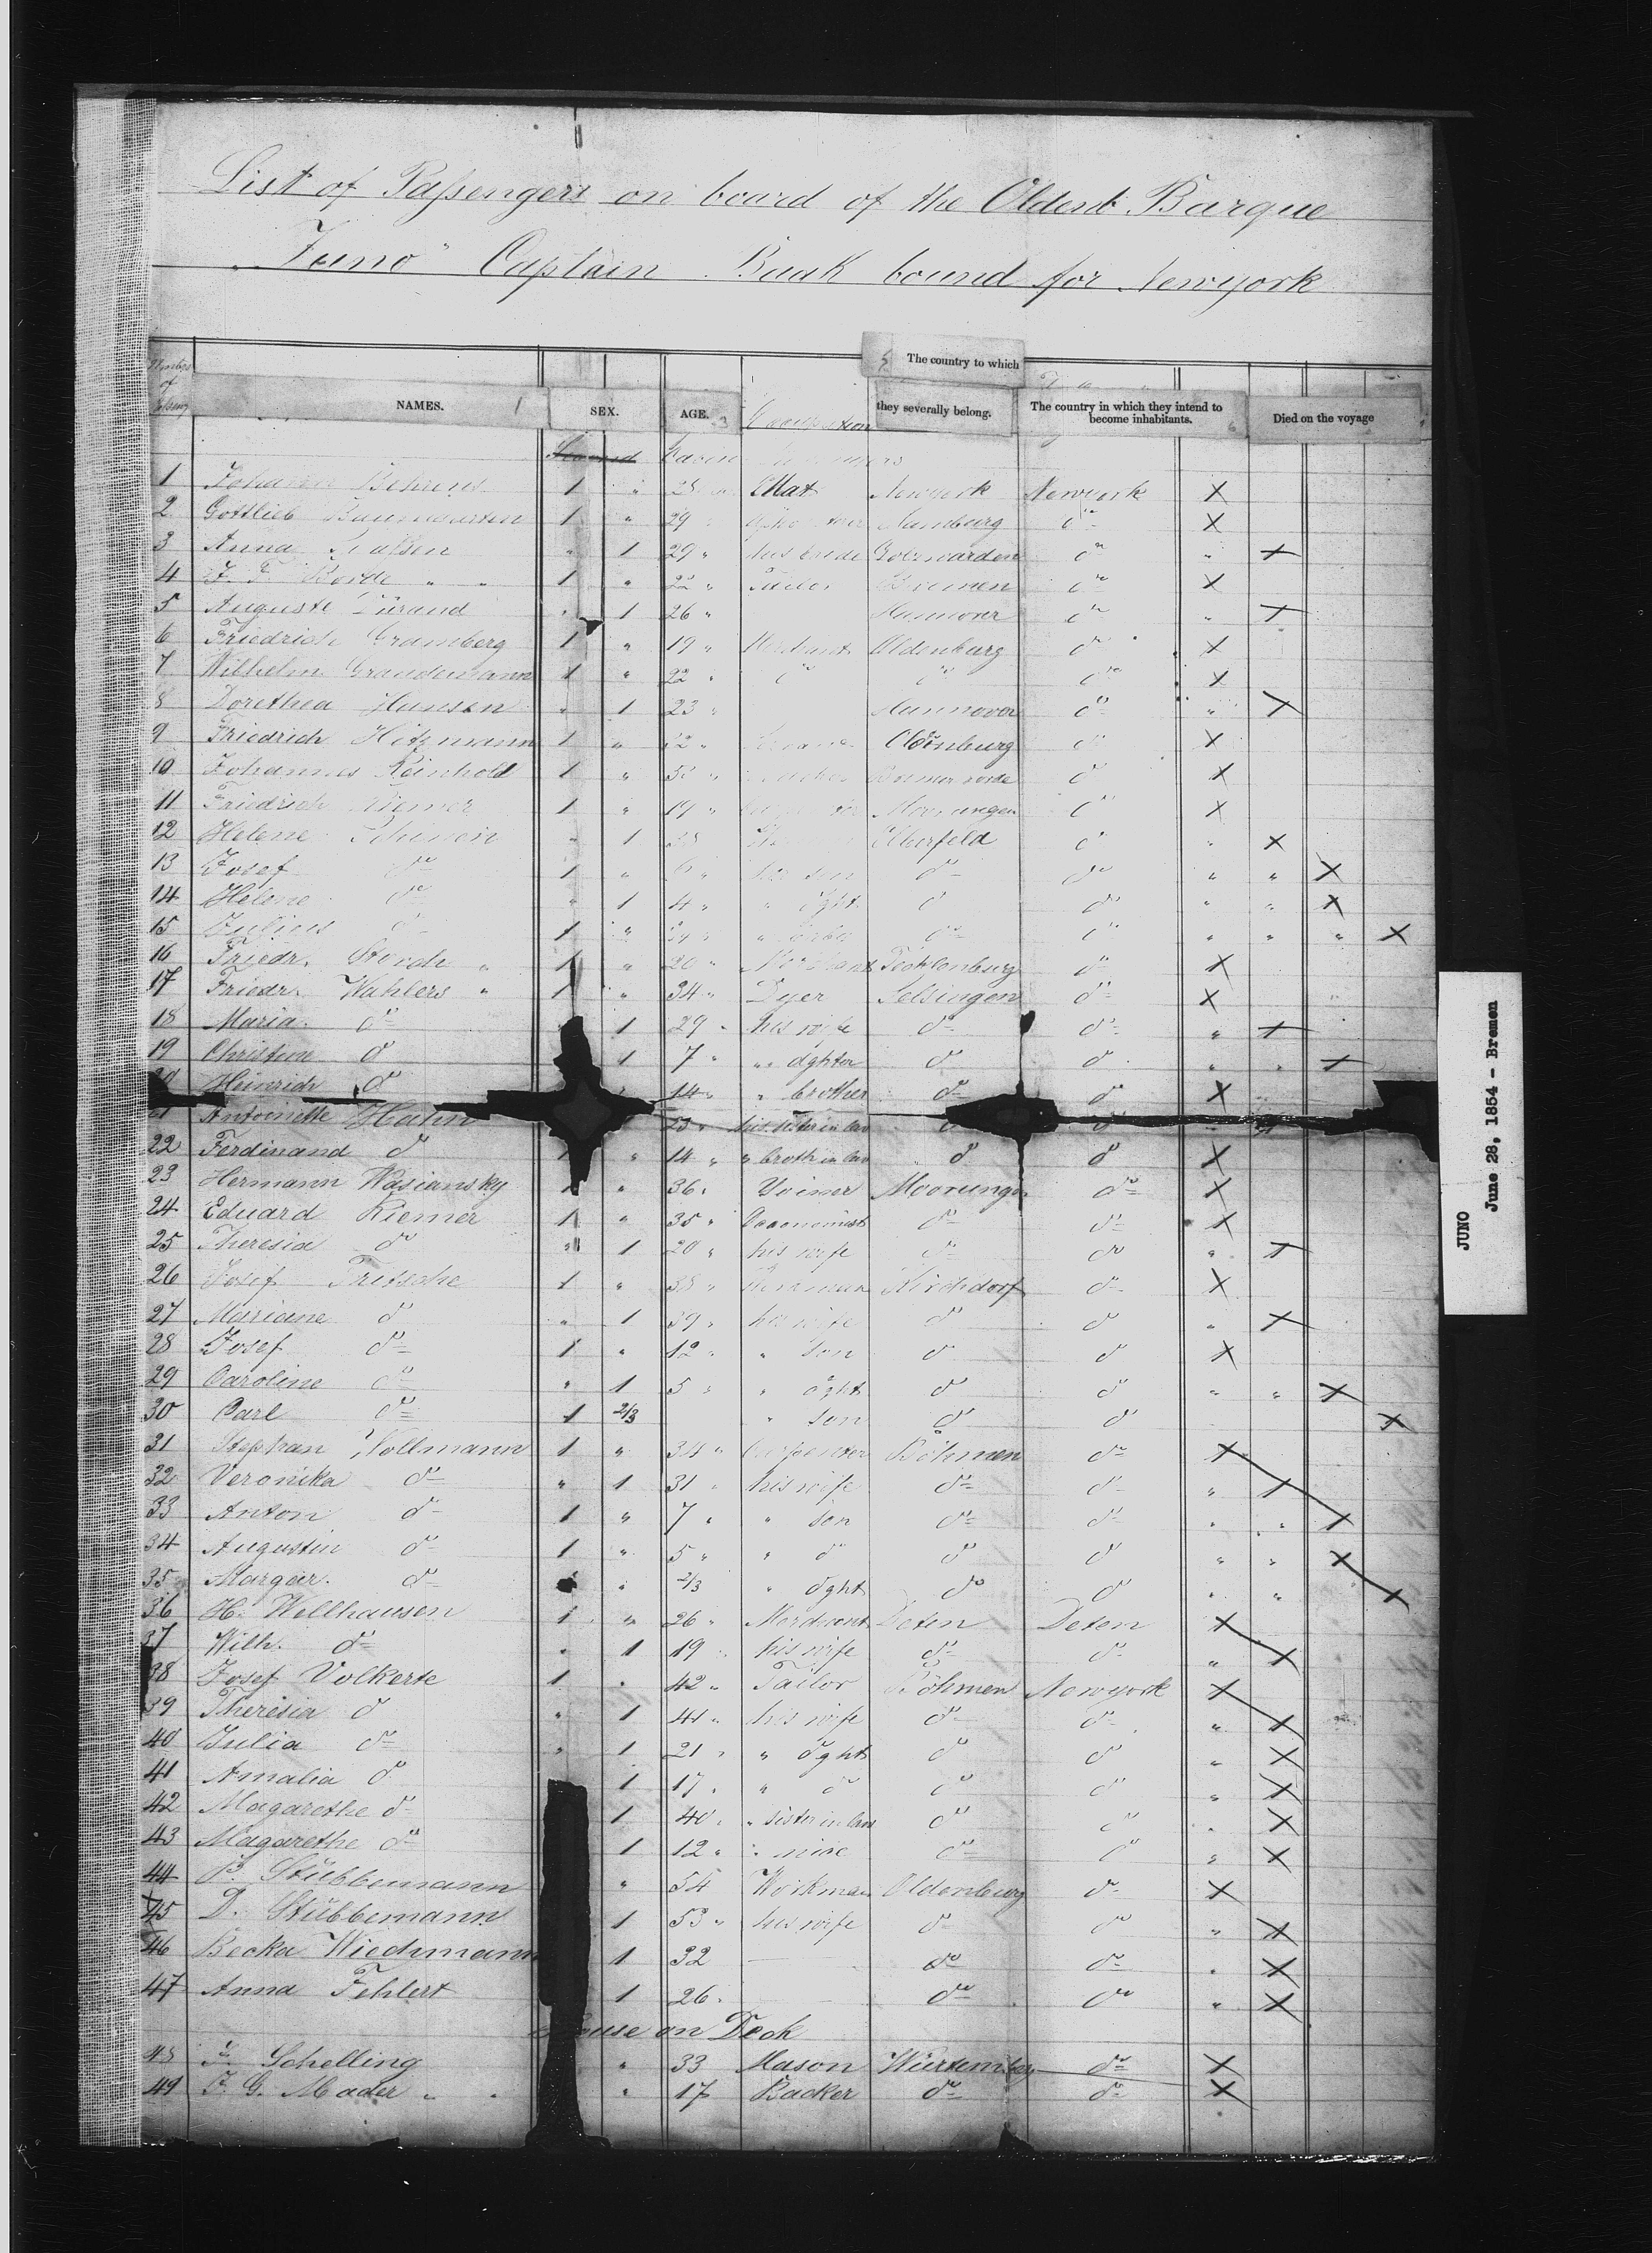 List of Passengers on board of the Oldenb. Barque
"Juno" Captain Baak bound for Newyork
Number of
NAMES. 1 SEX. AGE. 3 Occupation 5 The country to which they severally belong. The country in which they intend to become inhabitants. 6 Died on the voyage
Second Cabin
1 Johann Behrens 1 " Mat Newyork Newyork X
2 Gottlieb Baumgarten 1 " 29 " Hamburg do X
3 Anna " 1 29 " his bride Golzwarden do " X
4 J. F. Borde " " 1 " 22 " Tailor Bremen do X
5 Auguste Durand " 1 26 " Hannover do " X
6 Friedrich Gramberg 1 " 19 " Merchant Oldenburg do X
7 Wilhelm Grandemann 1 " 22 " do do do X
8 Dorethea Hansen " 1 23 " Hannover do " X
9 Friedrich Hitzmann 1 " Oldenburg do X
10 Johannes Reinhold 1 " do X
11 Friedrich Riemer 1 " 19 " Moorungen do X
12 Helene " 1 Elberfeld do " X
13 Josef do 1 " 6 " her son do do " " X
14 Helene do " 1 4 " " dght. do do " " X
15 Julius do 1 " do do " " " X
16 Friedr. Storch " 1 " 20 " Merchant Tecklenburg do X
17 Friedr. Wahlers " 1 " 34 " Dyer Selsingen do X
18 Maria do 1 29 " his wife do do " X
19 Christine do 1 7 " " dghter do do " " X
20 Heinrich do 14 " " brother do do X
21 Antoinette Hahn 23 " his sister in law do do " X
22 Ferdinand do 1 " 14 " " broth in law do do X
23 Hermann Wasiansky 1 " 36 " Joiner Moorungen do X
24 Eduard Riemer 1 " 35 " Oeconomist do do X
25 Theresia do " 1 20 " his wife do do " X
26 Josef Fritsche 1 " 38 " Kirchdorf do X
27 Mariane do " 1 39 " his wife do do " X
28 Josef do 1 " 12 " " son do do X
29 Caroline do " 1 5 " " dght do do " " X
30 Carl do 1 2/3 " son do do X
31 Stephan Wollmann 1 " 34 " Carpenter Böhmen do X
32 Veronika do " 1 31 " his wife do do " X
33 Anton do 1 " 7 " " son do do " " X
34 Augustin do 1 " 5 " " do do do " " X
35 Margar. do " 2/3 " dght do do " " X
36 H. Wellhausen 1 " 26 " Merchant Deten Deten X
37 Wilh. do " 1 19 " his wife do do " X
38 Josef Volkerte 1 " 42 " Tailor Böhmen Newyork X
39 Theresia do " 1 41 " his wife do do " X
40 Julia do " 1 21 " " dght do do " X
41 Amalia do 1 17 " " do do do " X
42 Magarethe do 1 40 " " sister in law do do " X
43 Magarethe do 1 12 " " nice do do " X
44 P. Stübbemann " 54 Workman Oldenburg do X
45 D. Stübbemann 1 53 " his wife do do " X
46 Becka Wiechmann 1 32 — do do " X
47 Anna Fehlert 1 26 " — do do " X
House on Deck
48 F. Schelling " 33 Mason Würtemberg do X
49 F. G. Mader " " " 17 Backer do do X
JUNO
June 28, 1854 - Bremen